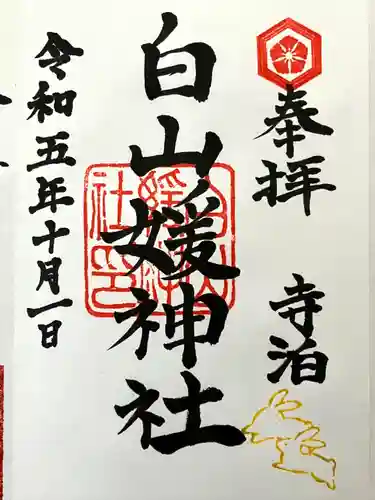 奉拝
寺泊
白山媛神社
令和五年十月一日